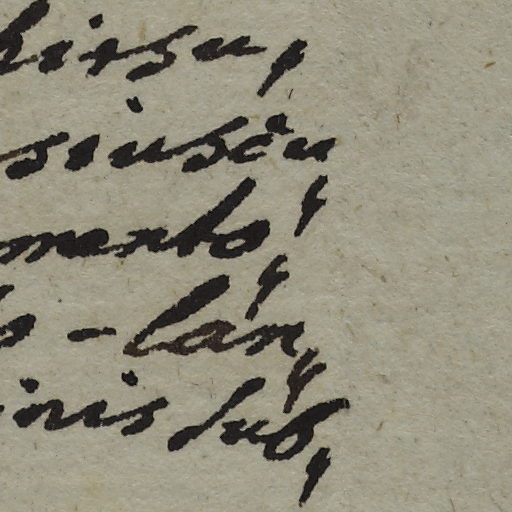 hirsu,
siuscu,
mento,
lan,
inis sub,